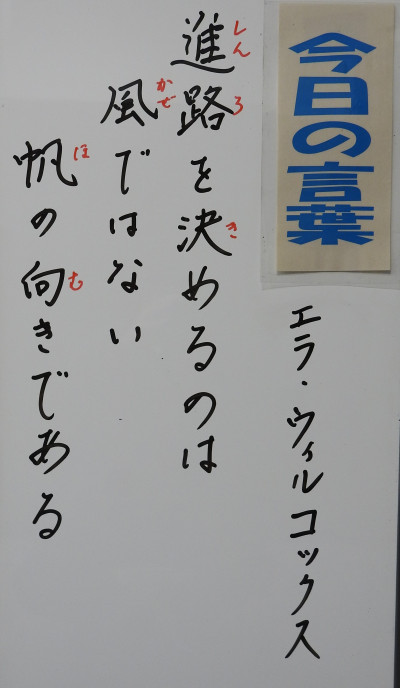 今日の言葉
エラ・ウィルコックス
進路を決めるのは
しんろ き
風ではない
かぜ
帆の向きである
ほ む